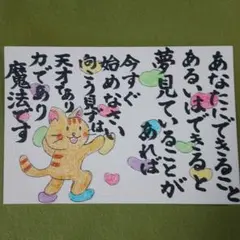 あなたにできること
あるいはできると
夢見ていることが
あれば
今すぐ
始めなさい
向こう見ずは
天才であり
力であり
魔法です